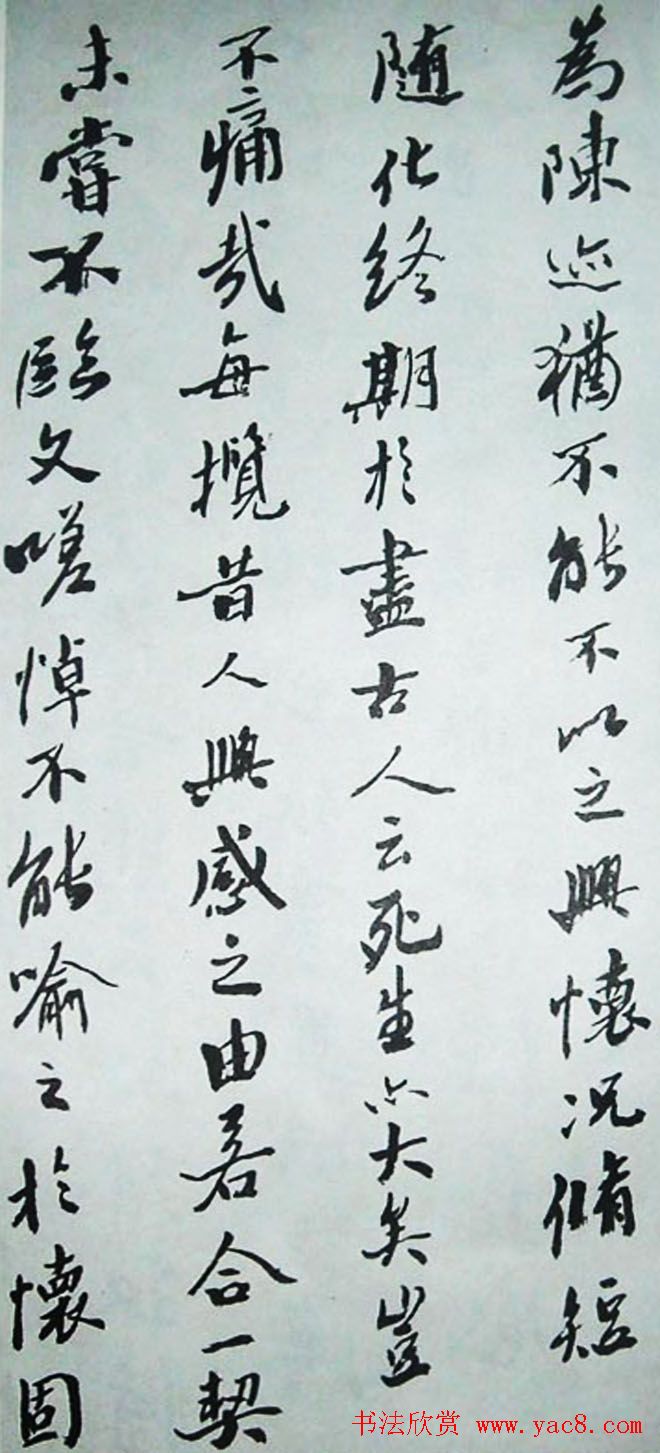 為陳迹猶不能不以之興懷況脩短
隨化終期於盡古人云死生亦大矣豈
不痛哉每攬昔人興感之由若合一契
未嘗不臨文嗟悼不能喻之於懷固
书法欣赏 www.yac8.com